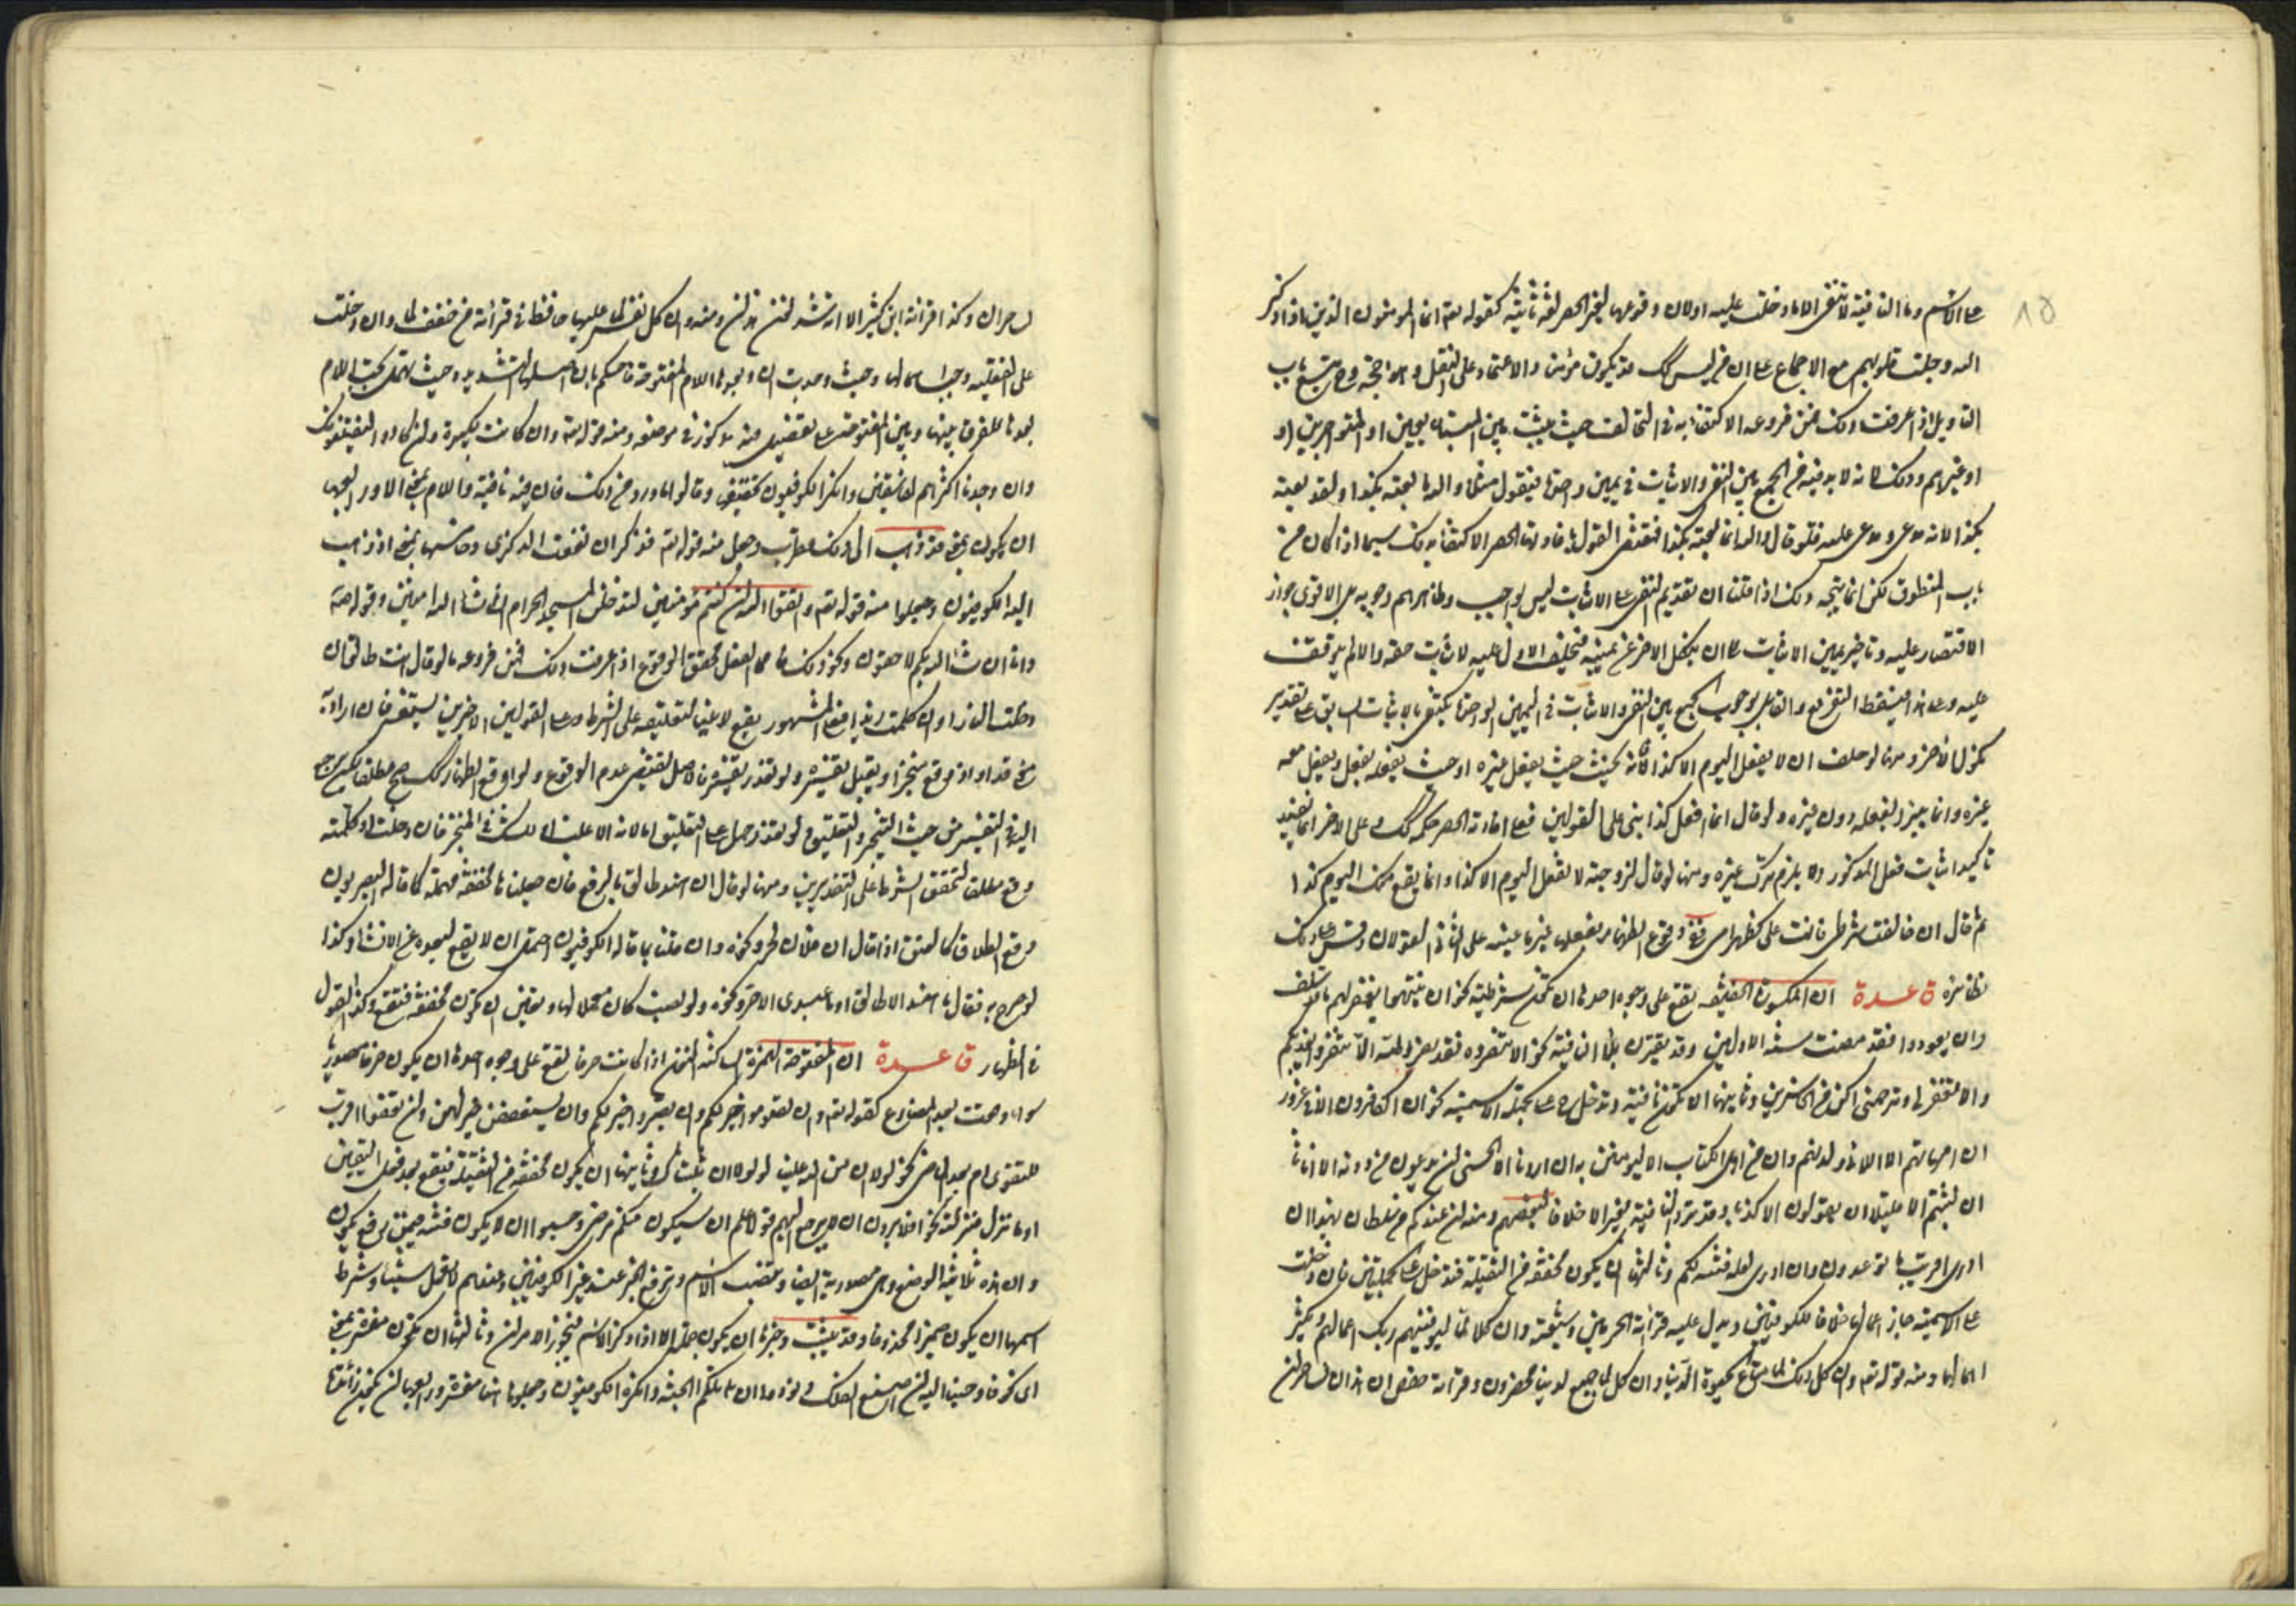 على الاسم وما النافية لا تنفي الا ما دخلت عليه اولا ان وقوعها لغير الحصر لغة ثانية كقوله تعالى انما المؤمنون الذين اذا ذكر
الله وجلت قلوبهم مع الاجماع على ان من ليس كذلك قد يكون مؤمنا والاعتماد على النقل
التأويل اذا عرفت ذلك فمن فروعه الاكتفاء به في التحالف حيث يثبت بين المتبايعين او المتواجرين او
او غيرهم وذلك لانه لا بد فيه من الجمع بين النفي والاثبات في يمين واحدة فيقول مثلا والله ما بعته بكذا ولقد بعته
بكذا لانه مدعى ومدعى عليه فلو قال والله انما بعته بكذا فمقتضى القول بافادتها الحصر الاكتفاء بذلك سيما اذا كان من
باب المنطوق لكن انما يتجه ذلك اذا قلنا ان تقديم النفي على الاثبات ليس بواجب وظاهرهم وجوبه بل الاقوى جواز
الاقتصار عليه وتاخير يمين الاثبات الى ان ينكل الاخر عن يمينه فيحلف الاول عليه لاثبات حقه والا لم يتوقف
عليه وعلى هذا فيسقط التفريع والقائل بوجوب الجمع بين النفي والاثبات في اليمين الواحدة يكتفي بالاثبات السابق على تقدير
نكول الاخر ومنها لو حلف ان لا يفعل اليوم الا كذا فانه يحنث حيث يفعل غيره او حيث يفعله يفعل معه
غيره وانما يبرء بفعله دون غيره ولو قال انما افعل كذا بني على القولين فعلى افادته الحصر حكمه كذلك وعلى الاخر انما يفيد
تاكيد اثبات فعل المذكور ولا يلزم ترك غيره ومنها لو قال لزوجته لا تفعل اليوم الا كذا وانما يقع منك اليوم كذا
ثم قال ان خالفت شرطي فانت علي كظهر امي ففي وقوع الظهار بفعلها غير ما عينه على الثاني القولان وقس على ذلك
نظائره قاعدة ان المكسورة الخفيفة يقع على وجوه احدها ان تكون شرطية نحو ان ينتهوا يغفر لهم ما قد سلف
وان يعودوا فقد مضت سنة الاولين وقد يقترن بلا النافية نحو الا تنصروه فقد نصره الله الا تنفروا يعذبكم
والا تغفر لي وترحمني اكن من الخاسرين وثانيها ان تكون نافية وتدخل على الجملة الاسمية نحو ان الكافرون الا في غرور
ان امهاتهم الا اللائي ولدنهم وان من اهل الكتاب الا ليؤمنن به ان اردنا الا الحسنى ان يدعون من دونه الا اناثا
ان لبثتم الا قليلا ان يقولون الا كذبا وقد ترد النافية بغير الا خلافا لبعضهم ومنه ان عندكم من سلطان بهذا ان
ادري اقريب ما توعدون وان ادري لعله فتنة لكم وثالثها ان يكون مخففة من الثقيلة فتدخل على الجملتين فان دخلت
على الاسمية جاز اعمالها خلافا للكوفيين ويدل عليه قراءة الحرميين وان كلا لما ليوفينهم ربك اعمالهم ويكثر
اهمالها ومنه قوله تعالى وان كل ذلك لما متاع الحيوة الدنيا وان كل لما جميع لدينا محضرون وقراءة حفص ان هذان لساحران
لساحران وكذا قراءة ابن كثير الا انه شدد نون هذان ومنه وان كل نفس لما عليها حافظ في قراءة من خفف لما وان دخلت
على الفعلية وجب اهمالها وحيث وجدت ان وبعدها اللام المفتوحة فاحكم بان اصلها التشديد
وبين المفتوحة على تفصيل مذكور في موضعه ومنه قوله تعالى وان كانت لكبيرة وان كادوا ليفتنونك
وان وجدنا اكثرهم لفاسقين وانكر الكوفيون تخفيفها وقالوا ما ورد من ذلك فان فيه نافية واللام بمعنى الا ورابعها
ان يكون بمعنى قد ذهب الى ذلك قطرب وجعل منه قوله تعالى فذكر ان نفعت الذكرى وخامسها بمعنى اذ ذهب
اليه الكوفيون وجعلوا منه قوله تعالى واتقوا الله ان كنتم مؤمنين لتدخلن المسجد الحرام ان شاء الله امنين وقوله ص
وانا ان شاء الله بكم لاحقون ونحو ذلك مما الفعل محقق الوقوع اذا عرفت ذلك فمن فروعه ما لو قال انت طالق ان
دخلت الدار او ان كلمت زيدا فعلى المشهور يقع لاغيا لتعليقه على الشرط وعلى القولين الاخيرين يستفسر فان اراد به
معنى قد او اذ وقع منجزا ويقبل تفسيره ولو تعذر تفسيره فالاصل يقتضي عدم الوقوع ولو اوقع الظهار كذلك صح مطلقا لكن يرجع
اليه في التفسير من حيث التنجيز والتعليق ولو تعذر حمل على التعليق
وقع مطلقا لتحقق الشرط على التقديرين ومنها لو قال ان هند طالق بالرفع فان جعلنا ها مخففة مهملة كما قاله البصريون
وقع الطلاق كالعتق اذا قال ان فلان لحر ونحوه وان قلنا بما قاله الكوفيون احتمل ان لا يقع لبعده عن الانشاء وكذا
لو صرح به فقال ما هند الا طالق او ما عبدي الا حر ونحوه ولو نصب كان محتملا لها ويعين ان تكون مخففة فتقع وكذا القول
في الظهار قاعدة ان المفتوحة الهمزة الساكنة النون اذا كانت حرفا تقع على وجوه احدها ان يكون حرفا مصدريا
سواء وصلت بعدها المضارع كقوله تعالى وان تصوموا خير لكم وان تصبروا خير لكم وان يستعففن خير لهن وان تعفوا اقرب
للتقوى ام بعدها الماضي نحو لولا ان من الله علينا ولولا ان ثبتناك وثانيها ان يكون مخففة من الثقيلة فيقع بعد فعل اليقين
او ما نزل منزلته نحو افلا يرون ان لا يرجع اليهم قولا علم ان سيكون منكم مرضى وحسبوا ان لا يكون فتنة فيمن رفع تكون
وان هذه ثلاثية الوضع وهي مصدرية ايضا وتنصب الاسم وترفع الخبر عند غير الكوفيين وعندهم لا تعمل شيئا وشرط
اسمها ان يكون ضميرا محذوفا وقد يثبت وخبرها ان يكون جملة الا اذا ذكر الاسم فيجوز الامران وثالثها ان تكون مفسرة بمعنى
اي نحو فاوحينا اليه ان اصنع الفلك ونودوا ان تلكم الجنة وانكره الكوفيون وجعلوها ابدا مفسرة ورابعها ان تكون زائدة